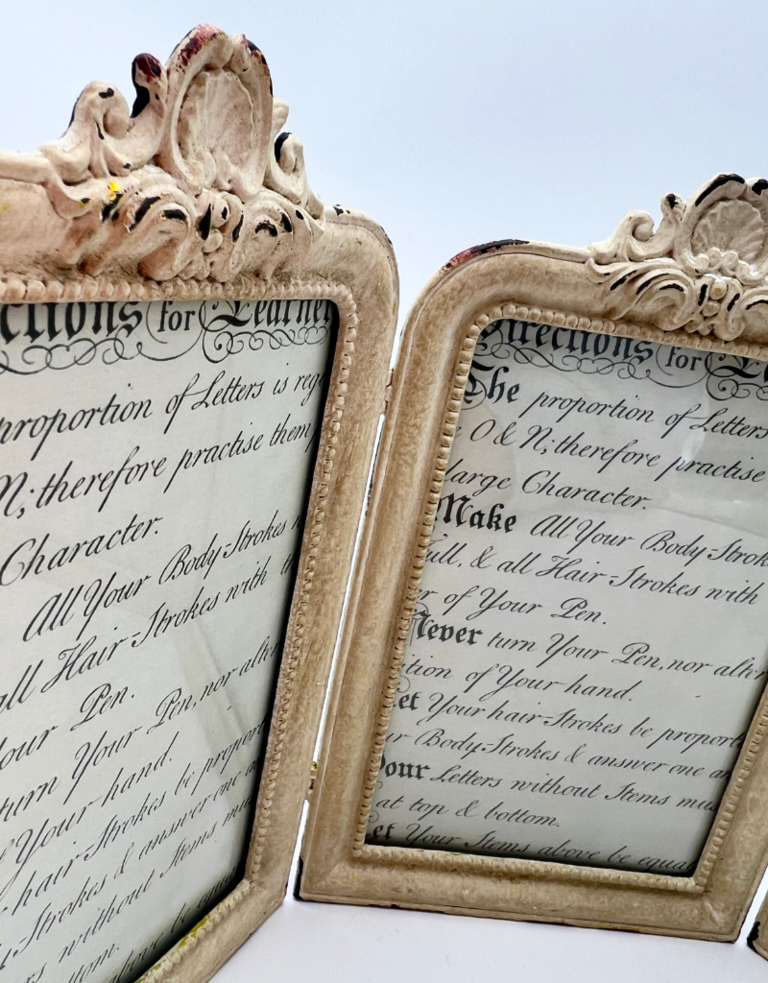 ctions for Learner
proportion of Letters is reg
N; therefore practise them
Character.
All Your Body-Strokes
all Hair-Strokes with
our Pen.
turn Your Pen, nor alter
f Your hand.
hair-Strokes be proport
Strokes & answer one a
rs without Stems mu
tom.
above be equa
Directions for Lea
The proportion of Letters
O & N; therefore practise
large Character.
Make All Your Body-Strok
Full, & all Hair-Strokes with
r of Your Pen.
Never turn Your Pen, nor alter
ition of Your hand.
et Your hair-Strokes be proporti
ur Body-Strokes & answer one an
our Letters without Stems mus
at top & bottom.
et Your Stems above be equal